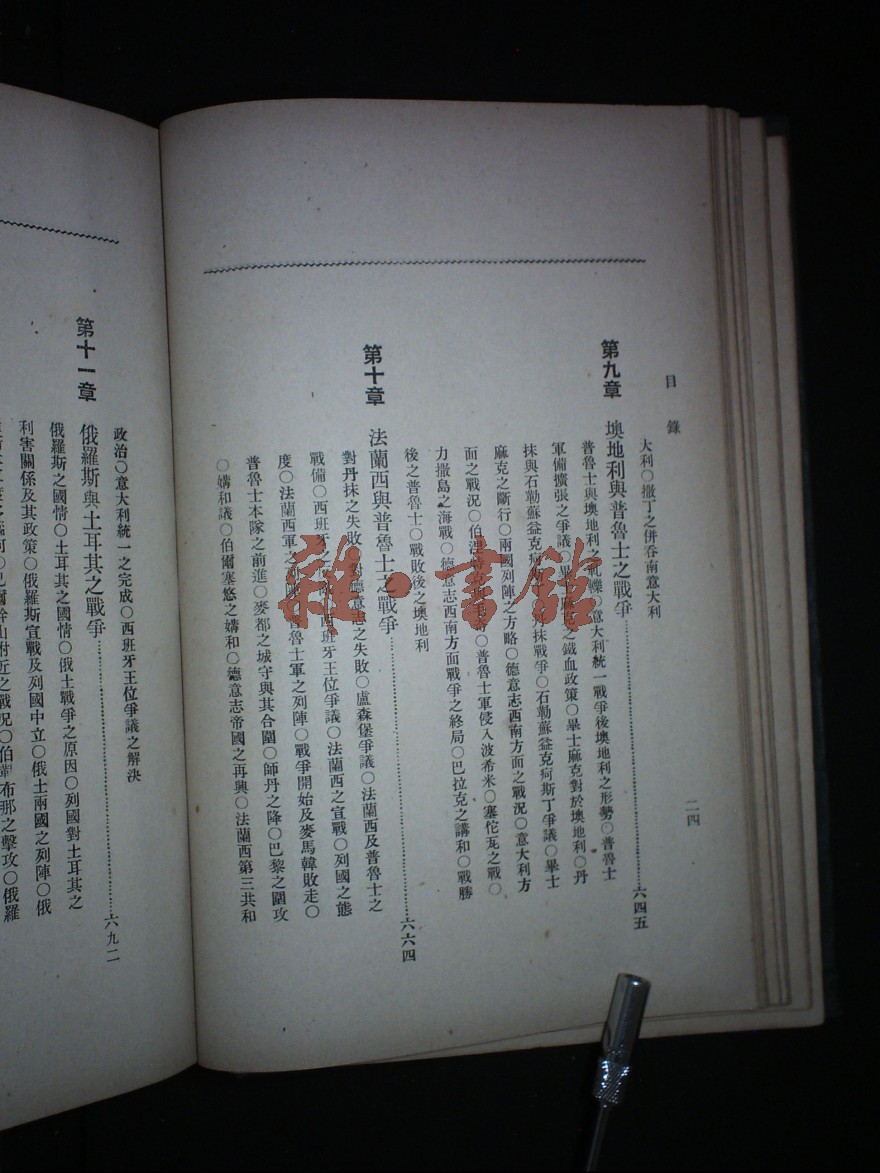 目錄
二四
大利○撒丁之併吞南意大利
第九章 墺地利與普魯士之戰爭…………六四五
普魯士與墺地利之軋轢○意大利統一戰爭後墺地利之形勢○普魯士
軍備擴張之爭議○畢士麻克之鐵血政策○畢士麻克對於墺地利○丹
抹與石勒蘇益克疴斯丁○丹抹戰爭○石勒蘇益克疴斯丁爭議○畢士
麻克之斷行○兩國列陣之方略○德意志西南方面之戰況○意大利方
面之戰況○伯涅特克○普魯士軍侵入波希米○塞佗瓦之戰○
力撒島之海戰○德意志西南方面戰爭之終局○巴拉克之講和○戰勝
後之普魯士○戰敗後之墺地利
第十章 法蘭西與普魯士之戰爭…………六六四
對丹抹之失敗○對德意志之失敗○盧森堡爭議○法蘭西及普魯士之
戰備○西班牙之○西班牙王位爭議○法蘭西之宣戰○列國之態
度○法蘭西軍之列陣○普魯士軍之列陣○戰爭開始及麥馬韓敗走○
普魯士本隊之前進○麥都之城守與其合圍○師丹之降○巴黎之圍攻
○媾和議○伯爾塞悠之媾和○德意志帝國之再興○法蘭西第三共和
政治○意大利統一之完成○西班牙王位爭議之解決
第十一章 俄羅斯與土耳其之戰爭…………六九二
俄羅斯之國情○土耳其之國情○俄土戰爭之原因○列國對土耳其之
利害關係及其政策○俄羅斯宣戰及列國中立○俄土兩國之列陣○俄
山附近之戰況○伯布那之擊攻○俄羅
雜·書館